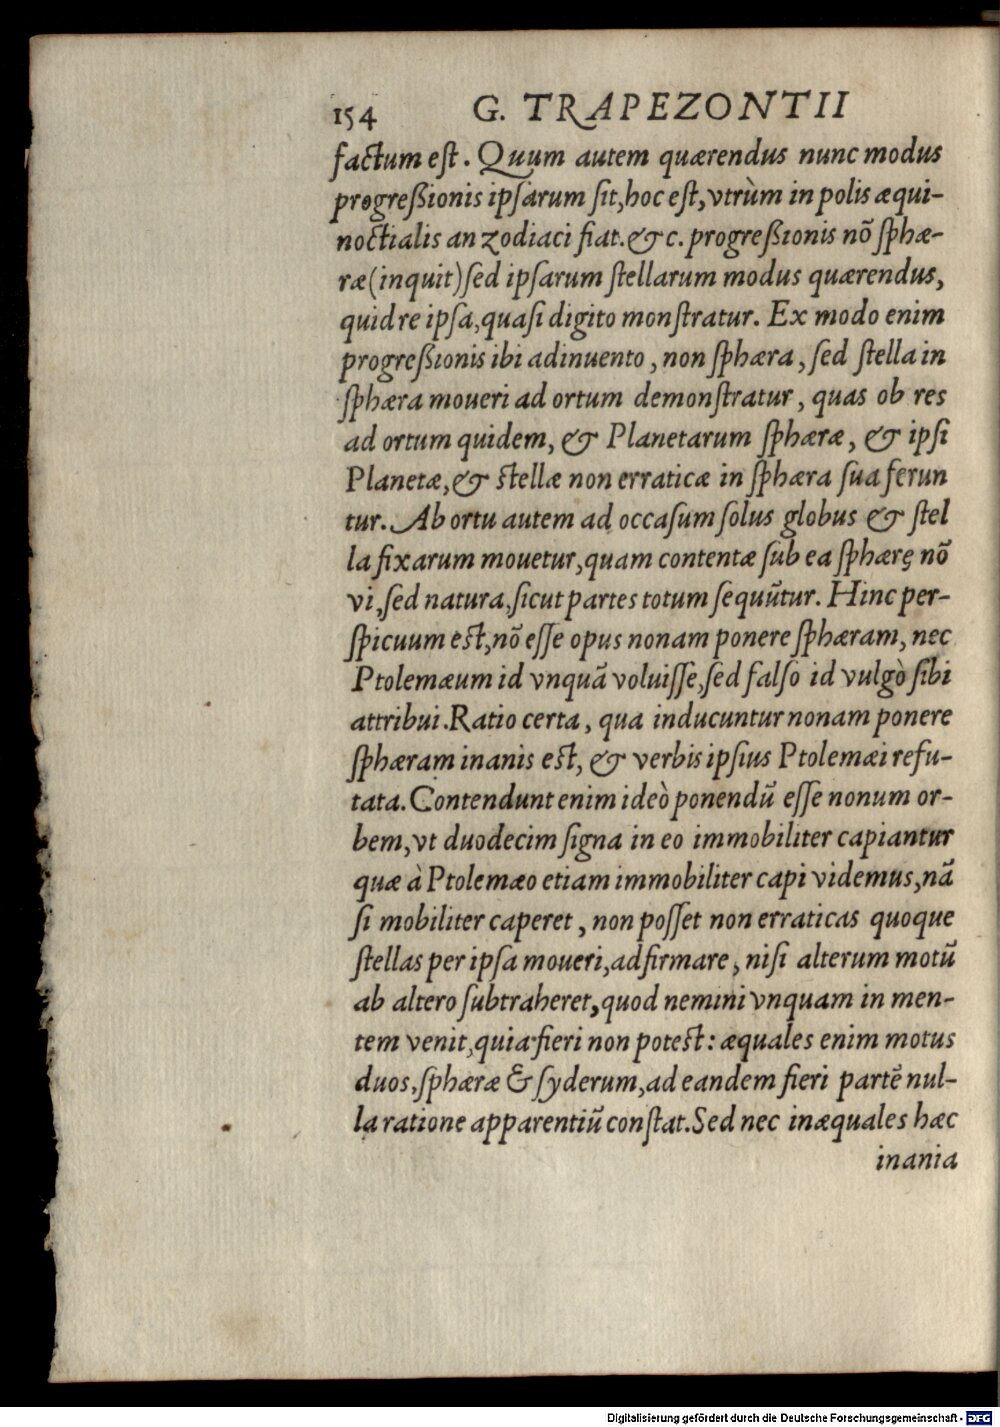 154 G. TRAPEZONTII
factum est. Quum autem quærendus nunc modus
progreßionis ipsarum sit, hoc est, vtrùm in polis æqui-
noctialis an zodiaci fiat. &c. progreßionis nõ sphæ-
ræ (inquit) sed ipsarum stellarum modus quærendus,
quid re ipsa, quasi digito monstratur. Ex modo enim
progreßionis ibi adinuento, non sphæra, sed stella in
sphæra moueri ad ortum demonstratur, quas ob res
ad ortum quidem, & Planetarum sphæræ, & ipsi
Planetæ, & stellæ non erraticæ in sphæra sua ferun
tur. Ab ortu autem ad occasum solus globus & stel
la fixarum mouetur, quam contentæ sub ea sphærę nõ
vi, sed natura, sicut partes totum sequũtur. Hinc per-
spicuum est, nõ esse opus nonam ponere sphæram, nec
Ptolemæum id vnquã voluisse, sed falso id vulgò sibi
attribui. Ratio certa, qua inducuntur nonam ponere
sphæram inanis est, & verbis ipsius Ptolemæi refu-
tata. Contendunt enim ideò ponendũ esse nonum or-
bem, vt duodecim signa in eo immobiliter capiantur
quæ à Ptolemæo etiam immobiliter capi videmus, nã
si mobiliter caperet, non posset non erraticas quoque
stellas per ipsa moueri, adfirmare, nisi alterum motũ
ab altero subtraheret, quod nemini vnquam in men-
tem venit, quia fieri non potest: æquales enim motus
duos, sphæræ & syderum, ad eandem fieri partẽ nul-
la ratione apparentiũ constat. Sed nec inæquales hæc
inania
Digitalisierung gefördert durch die Deutsche Forschungsgemeinschaft - DFG